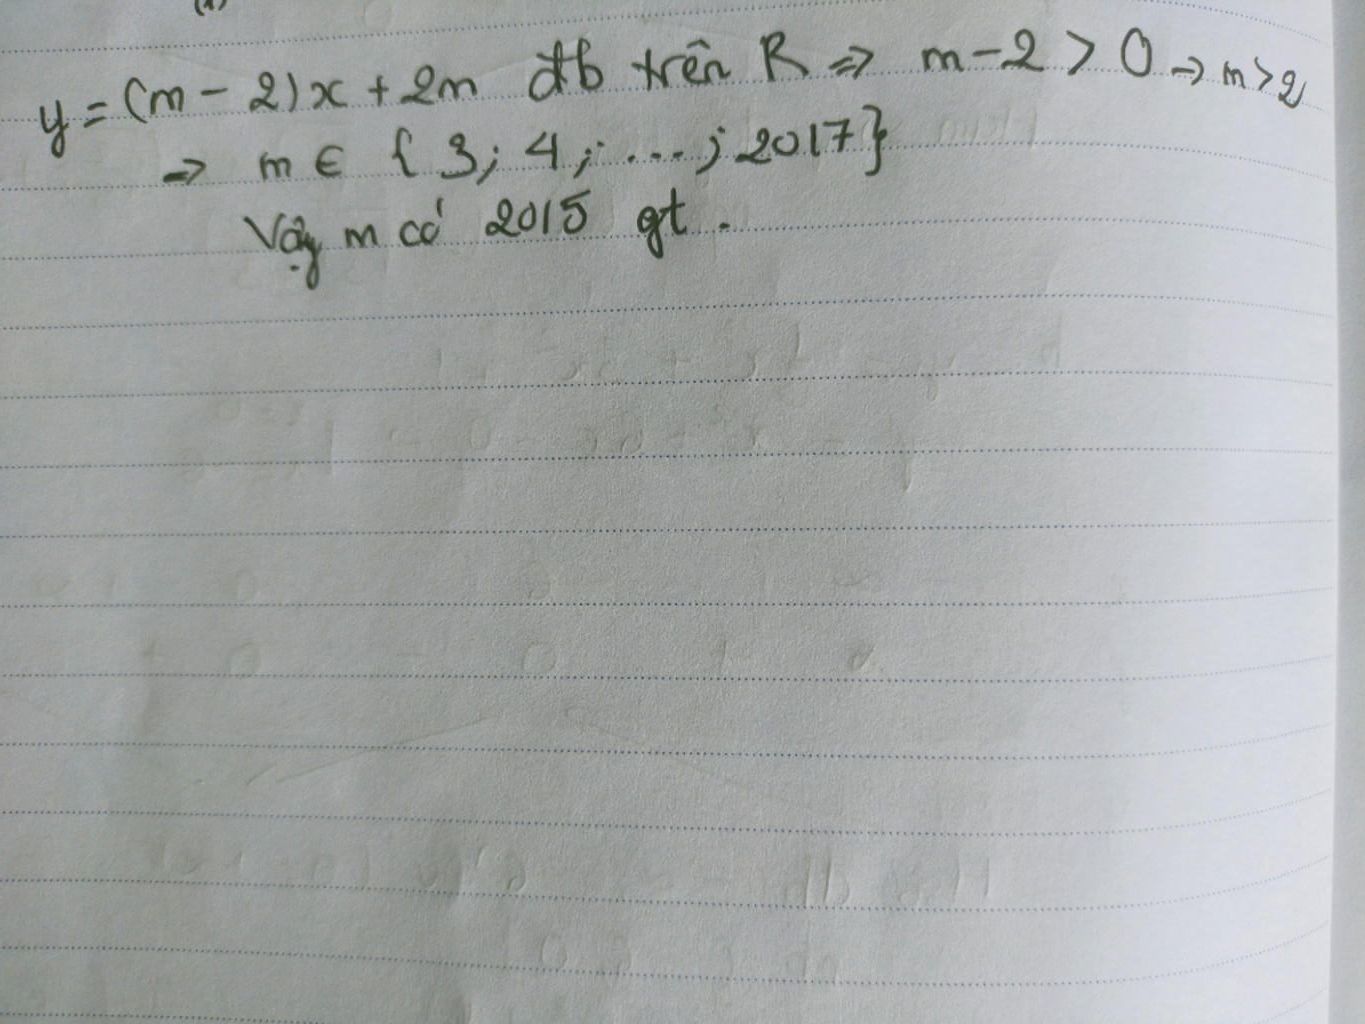 y = (m - 2)x + 2m đb trên R => m - 2 > 0 -> m > 2
=> m ∈ { 3; 4; ...; 2017}
Vậy m có 2015 gt.